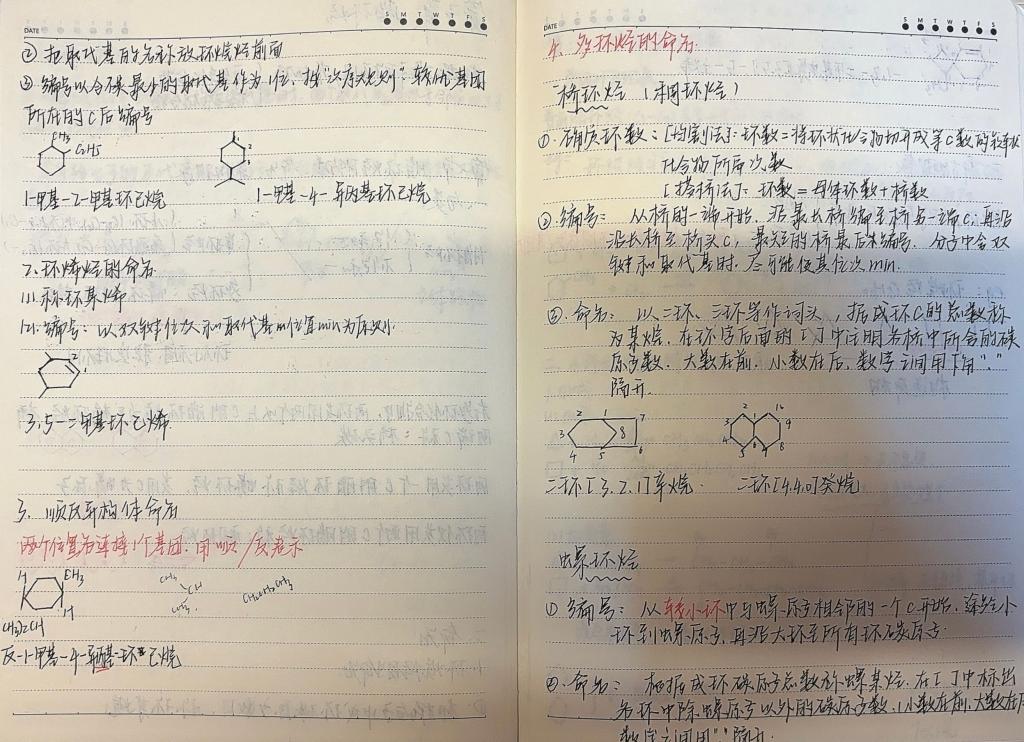 DATE
S M T W T F S
② 把取代基的名称放环烷烃前面
③ 编号以含碳最小的取代基作为1位,按"次序规则"较优基团
所在的C后编号
CH3
C2H5
1
2
1-甲基-2-甲基环己烷
1-甲基-4-异丙基环己烷
2. 环烯烃的命名
(1) 称环某烯
(2) 编号:以双键位次和取代基位置min为原则
1
3,5-二甲基环己烯
3. 顺反异构体命名
两个位置各连接1个基团,用顺/反表示
H
CH3
H
(CH3)2CH
CH3
CH
CH2CH2CH3
反-1-甲基-4-异丙基-环己烷
DATE
S M T W T F S
4. 多环烃的命名
桥环烃(稠环烃)
① 确定环数:[切割法]:环数=将环状化合物切开成等C数的链状
化合物所需次数
[搭桥法]:环数=母体环数+桥数
② 编号:从桥的一端开始,沿最长桥编至桥另一端C,再沿
沿长桥至桥头C,最短的桥最后才编号,分子中含双
键和取代基时,尽可能使其位次min.
③ 命名:以二环、三环等作词头,按成环C的总数称
为某烷,在环字后面的[ ]中注明各桥中所含的碳
原子数,大数在前,小数在后,数字之间用下角"."
隔开.
2 1 7
3 8
4 5 6
2 1 10
3 9
4 8
5 6 7
二环[3.2.1]辛烷
二环[4.4.0]癸烷
螺环烃
① 编号:从较小环中与螺原子相邻的一个C开始,途经小
环到螺原子,再沿大环至所有环碳原子.
② 命名:根据成环碳原子总数称螺某烷,在[ ]中标出
各环中除螺原子以外的碳原子数,(小数在前,大数在
数字之间用"."隔开.